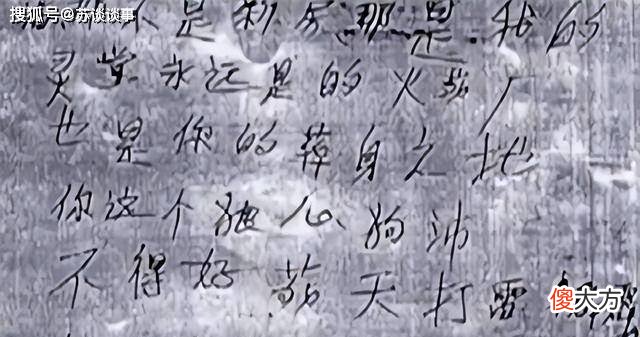 搜狐号@苏谈谈事
不是 那是我的
灵堂永远是的火葬厂
也是你的葬身之地
你这个狼心狗沛
不得好葬天打雷
傻大方